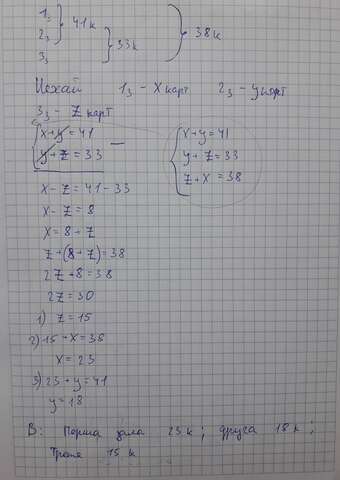 1з } 41к
2з } 33к } 38к
3з
Нехай 1з - x карт 2з - y карт
3з - z карт
{ x+y=41
{ y+z=33 —
{ x+y=41
{ y+z=33
{ z+x=38
x-z=41-33
x-z=8
x=8+z
z+(8+z)=38
2z+8=38
2z=30
1) z=15
2) 15+x=38
x=23
3) 23+y=41
y=18
В: Перша зала 23 к; друга 18 к;
Третя 15 к